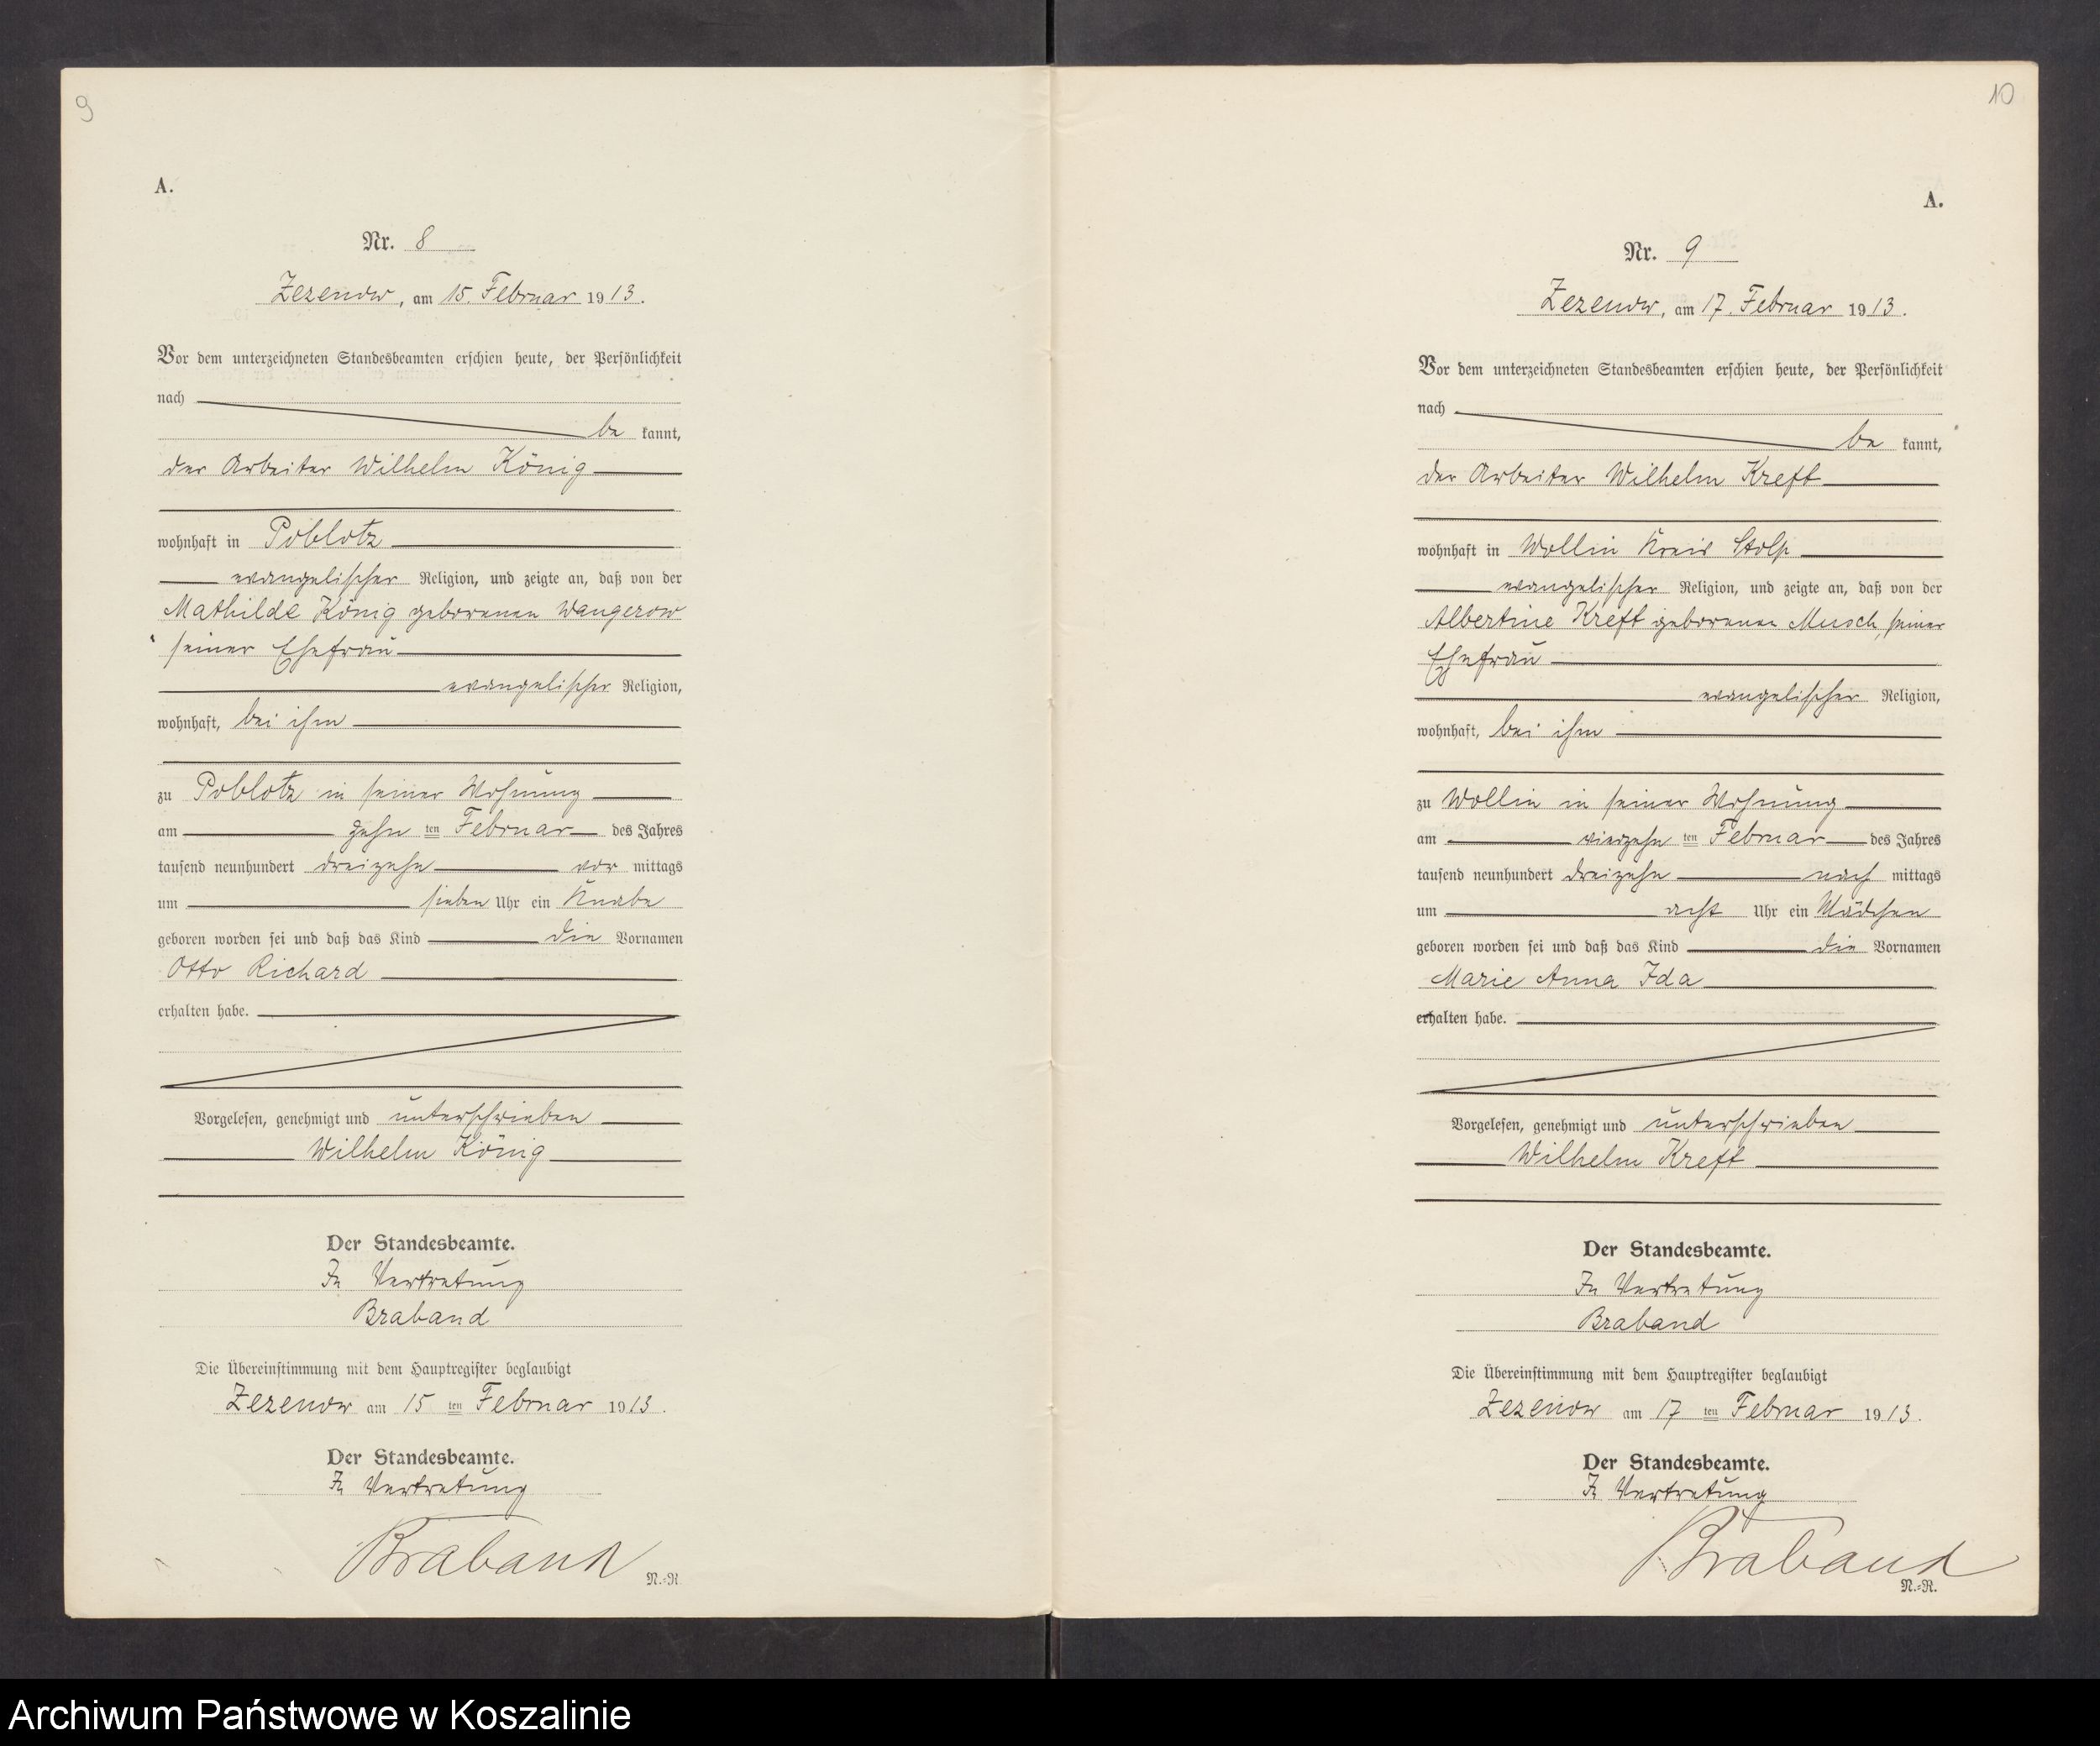 9
A.
Nr. 8
Zezenow, am 15. Februar 1913.
Vor dem unterzeichneten Standesbeamten erschien heute, der Persönlichkeit
nach
be kannt,
der Arbeiter Wilhelm König
wohnhaft in Poblotz
evangelischer Religion, und zeigte an, daß von der
Mathilde König geborenen Wangerow
seiner Ehefrau
evangelischer Religion,
wohnhaft, bei ihm
zu Poblotz in seiner Wohnung
am zehn ten Februar des Jahres
tausend neunhundert dreizehn vor mittags
um sieben Uhr ein Knabe
geboren worden sei und daß das Kind die Vornamen
Otto Richard
erhalten habe.
Vorgelesen, genehmigt und unterschrieben
Wilhelm König
Der Standesbeamte.
In Vertretung
Braband
Die Übereinstimmung mit dem Hauptregister beglaubigt
Zezenow am 15 ten Februar 1913.
Der Standesbeamte.
In Vertretung
Braband
N.=R.
10
A.
Nr. 9
Zezenow, am 17. Februar 1913.
Vor dem unterzeichneten Standesbeamten erschien heute, der Persönlichkeit
nach
be kannt,
der Arbeiter Wilhelm Kreft
wohnhaft in Wollin Kreis Stolp
evangelischer Religion, und zeigte an, daß von der
Albertine Kreft geborenen Musch, seiner
Ehefrau
evangelischer Religion,
wohnhaft, bei ihm
zu Wollin in seiner Wohnung
am vierzehn ten Februar des Jahres
tausend neunhundert dreizehn nach mittags
um acht Uhr ein Mädchen
geboren worden sei und daß das Kind die Vornamen
Marie Anna Ida
erhalten habe.
Vorgelesen, genehmigt und unterschrieben
Wilhelm Kreft
Der Standesbeamte.
In Vertretung
Braband
Die Übereinstimmung mit dem Hauptregister beglaubigt
Zezenow am 17 ten Februar 1913.
Der Standesbeamte.
In Vertretung
Braband
N.=R.
Archiwum Państwowe w Koszalinie